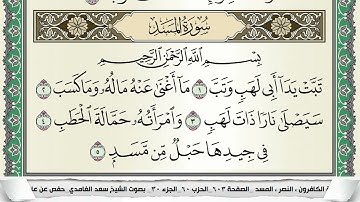 سُورَةُ المَسَدِ
بِسْمِ اللَّهِ الرَّحْمَٰنِ الرَّحِيمِ
تَبَّتْ يَدَآ أَبِى لَهَبٍ وَتَبَّ ١ مَآ أَغْنَىٰ عَنْهُ مَالُهُۥ وَمَا كَسَبَ ٢
سَيَصْلَىٰ نَارًا ذَاتَ لَهَبٍ ٣ وَٱمْرَأَتُهُۥ حَمَّالَةَ ٱلْحَطَبِ ٤
فِى جِيدِهَا حَبْلٌ مِّن مَّسَدٍۭ ٥
الكافرون ، النصر ، المسد _ الصفحة ٦٠٣ _ الحزب ٦٠ _ الجزء ٣٠ _ بصوت الشيخ سعد الغامدي _ حفص عن